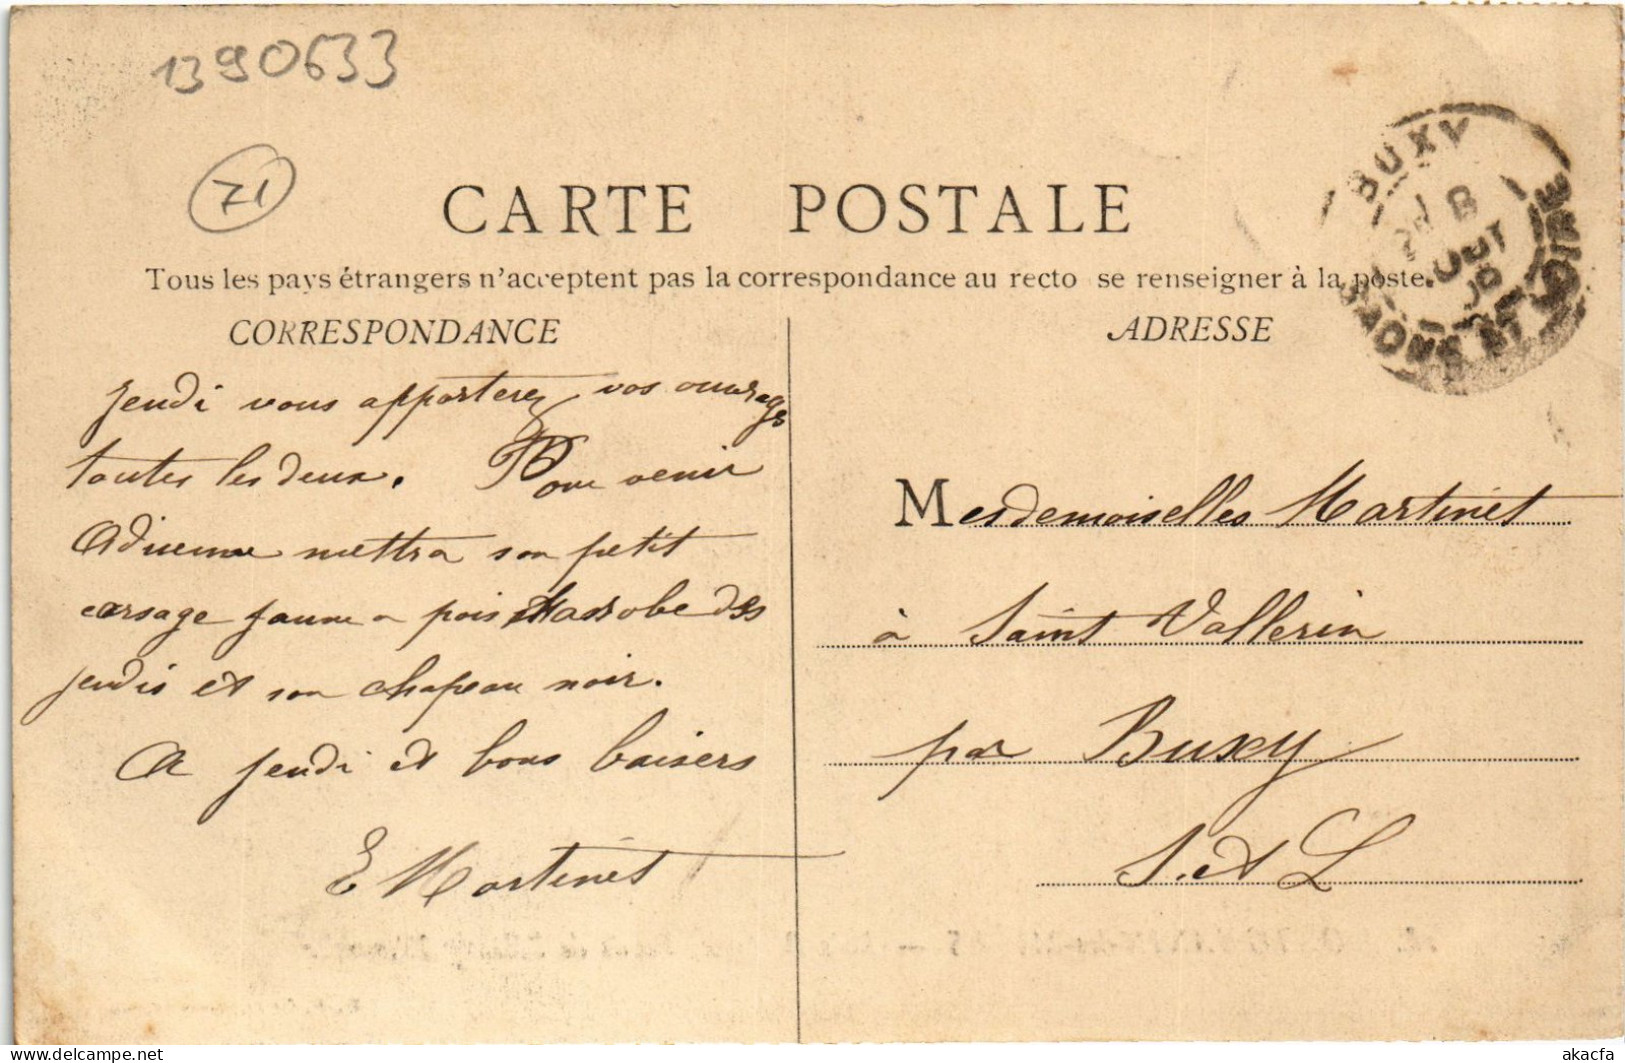 1390633
71
CARTE POSTALE
Tous les pays étrangers n'acceptent pas la correspondance au recto se renseigner à la poste.
CORRESPONDANCE
ADRESSE
BUXY
8
SAONE ET LOIRE
jeudi vous apporterez vos ouvrages
toutes les deux. Pour venir
Adrienne mettra son petit
corsage jaune a pois sa robe des
jeudis et son chapeau noir.
A jeudi et bons baisers
E Martinet
Mesdemoiselles Martinet
à Saint Vallerin
par Buxy
S. et L
akacfa